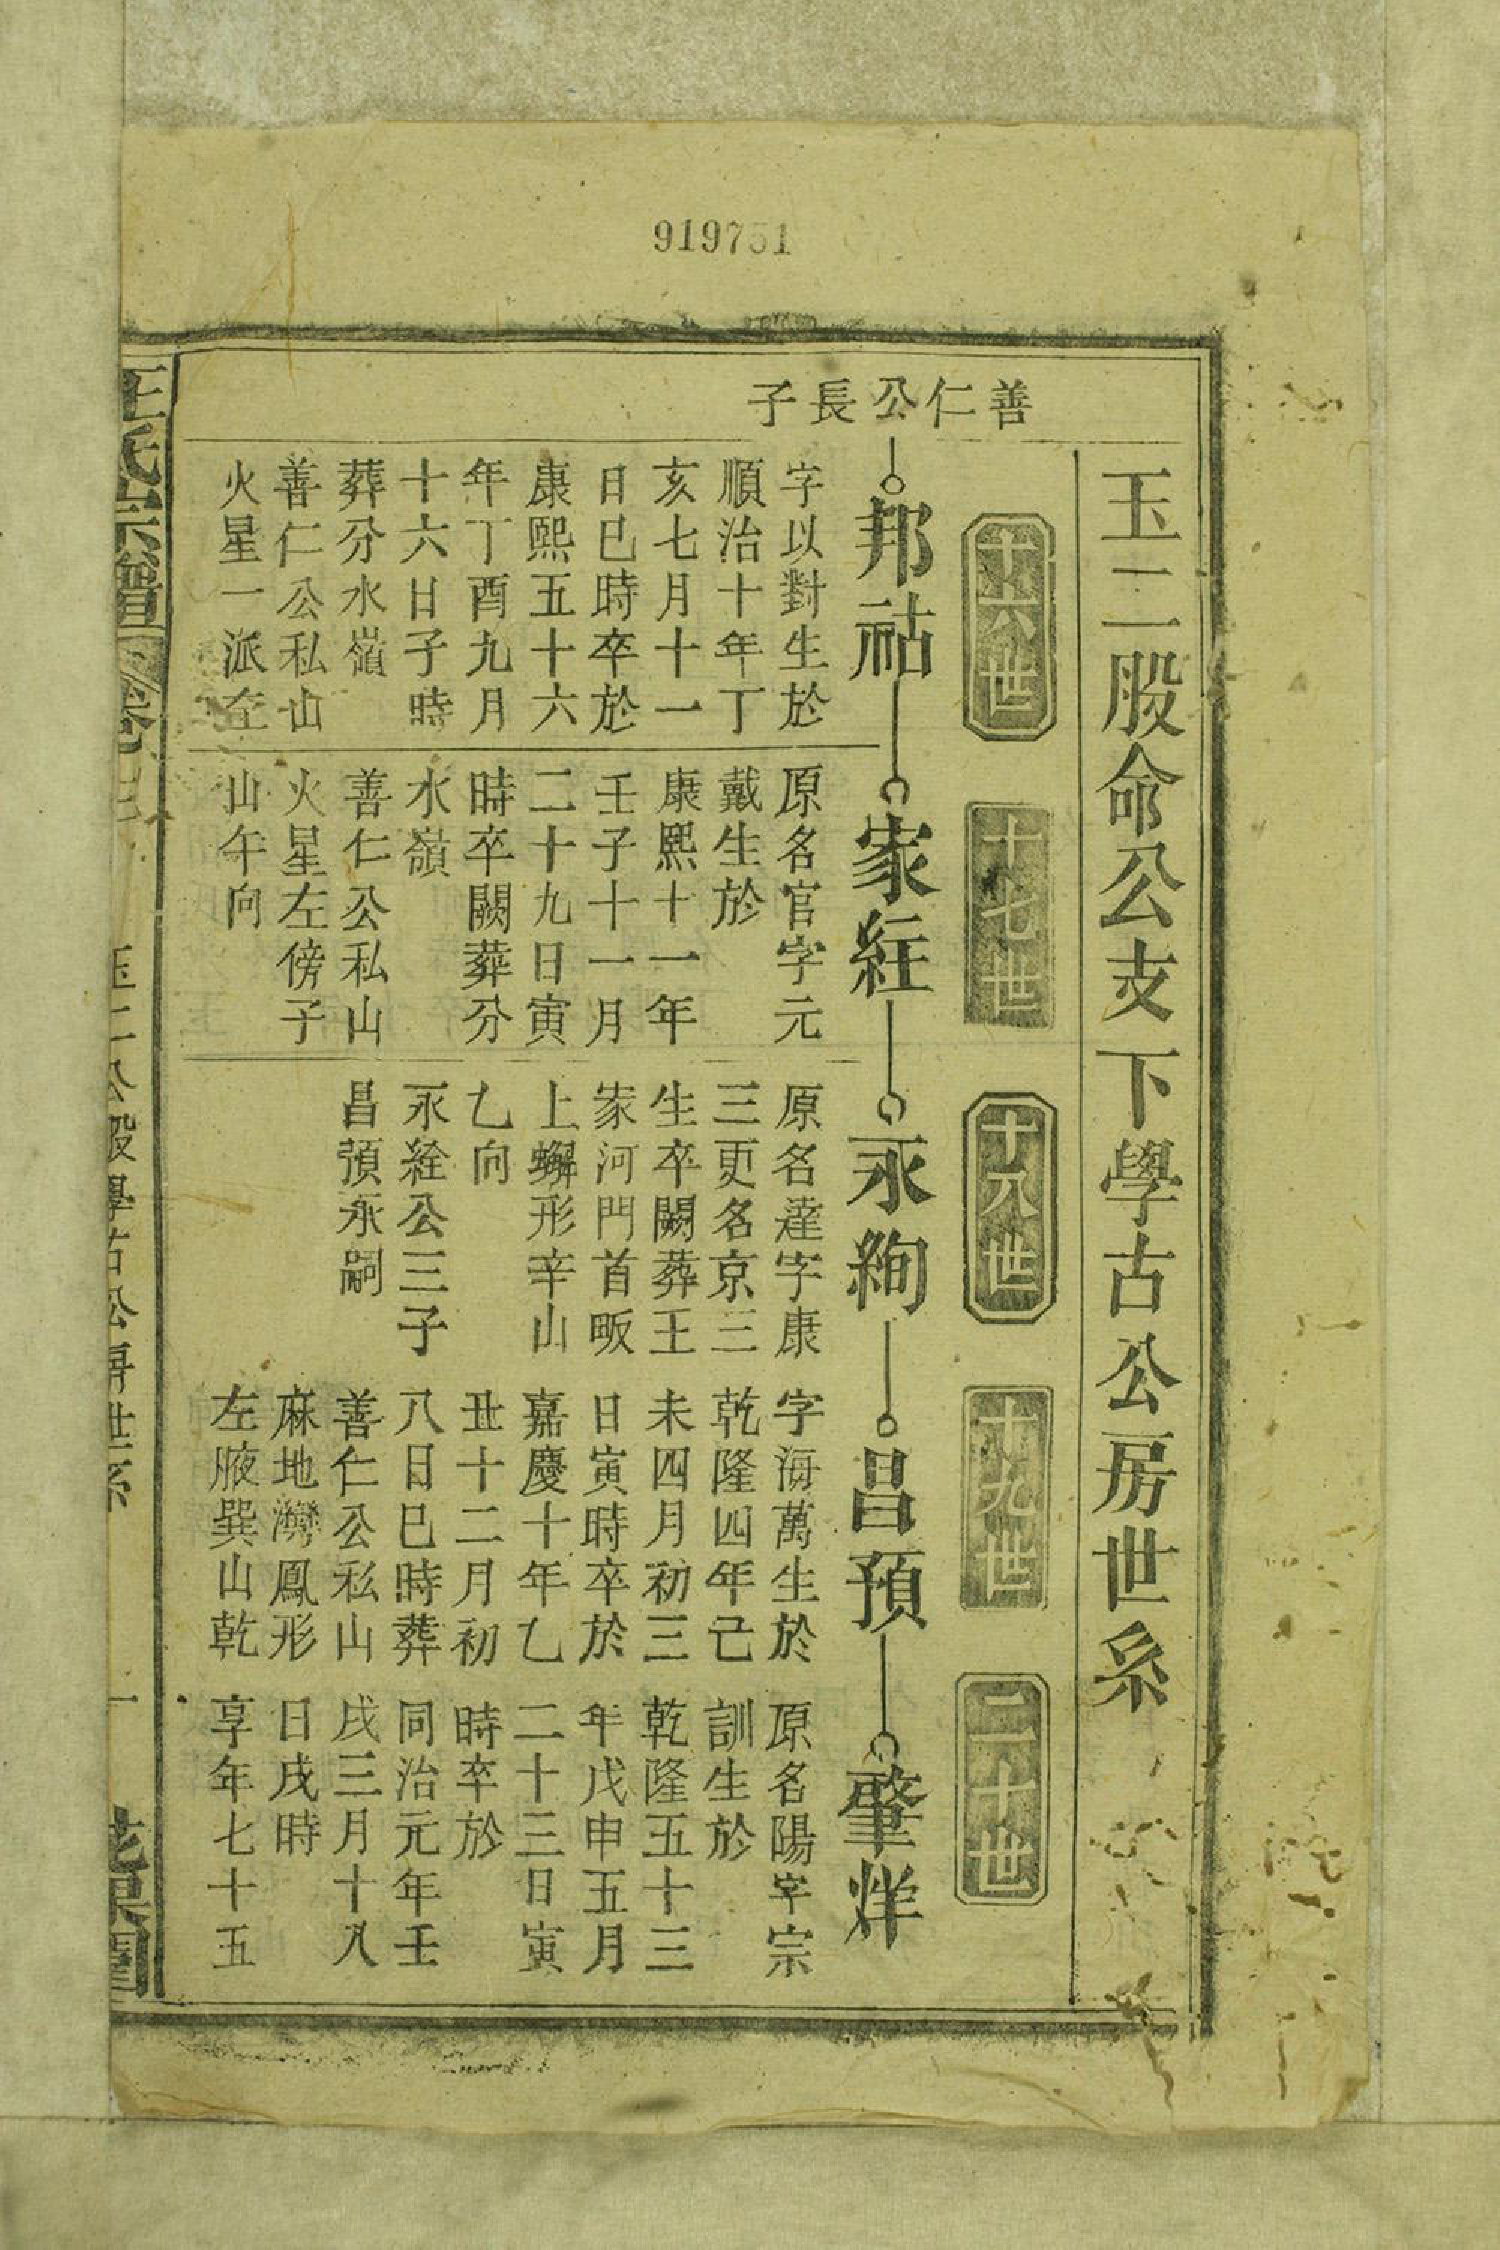 919751
玉二股命公支下學古公房世系
十六世
十七世
十八世
十九世
二十世
善仁公長子
邦祜
家紝
永絢
昌預
肇烊
字以對生於
順治十年丁
亥七月十一
日巳時卒於
康熙五十六
年丁酉九月
十六日子時
葬分水嶺
善仁公私山
火星一派左
原名官字元
戴生於
康熙十一年
壬子十一月
二十九日寅
時卒闕葬分
水嶺
善仁公私山
火星左傍子
山午向
原名達字康
三更名京三
生卒闕葬王
家河門首畈
上蠏形辛山
乙向
永絟公三子
昌預永嗣
字海萬生於
乾隆四年己
未四月初三
日寅時卒於
嘉慶十年乙
丑十二月初
八日巳時葬
善仁公私山
麻地灣鳳形
左腋巽山乾
原名陽字宗
訓生於
乾隆五十三
年戊申五月
二十三日寅
時卒於
同治元年壬
戌三月十八
日戌時
享年七十五
氏宗譜
卷
玉二公股學古公房世系
一